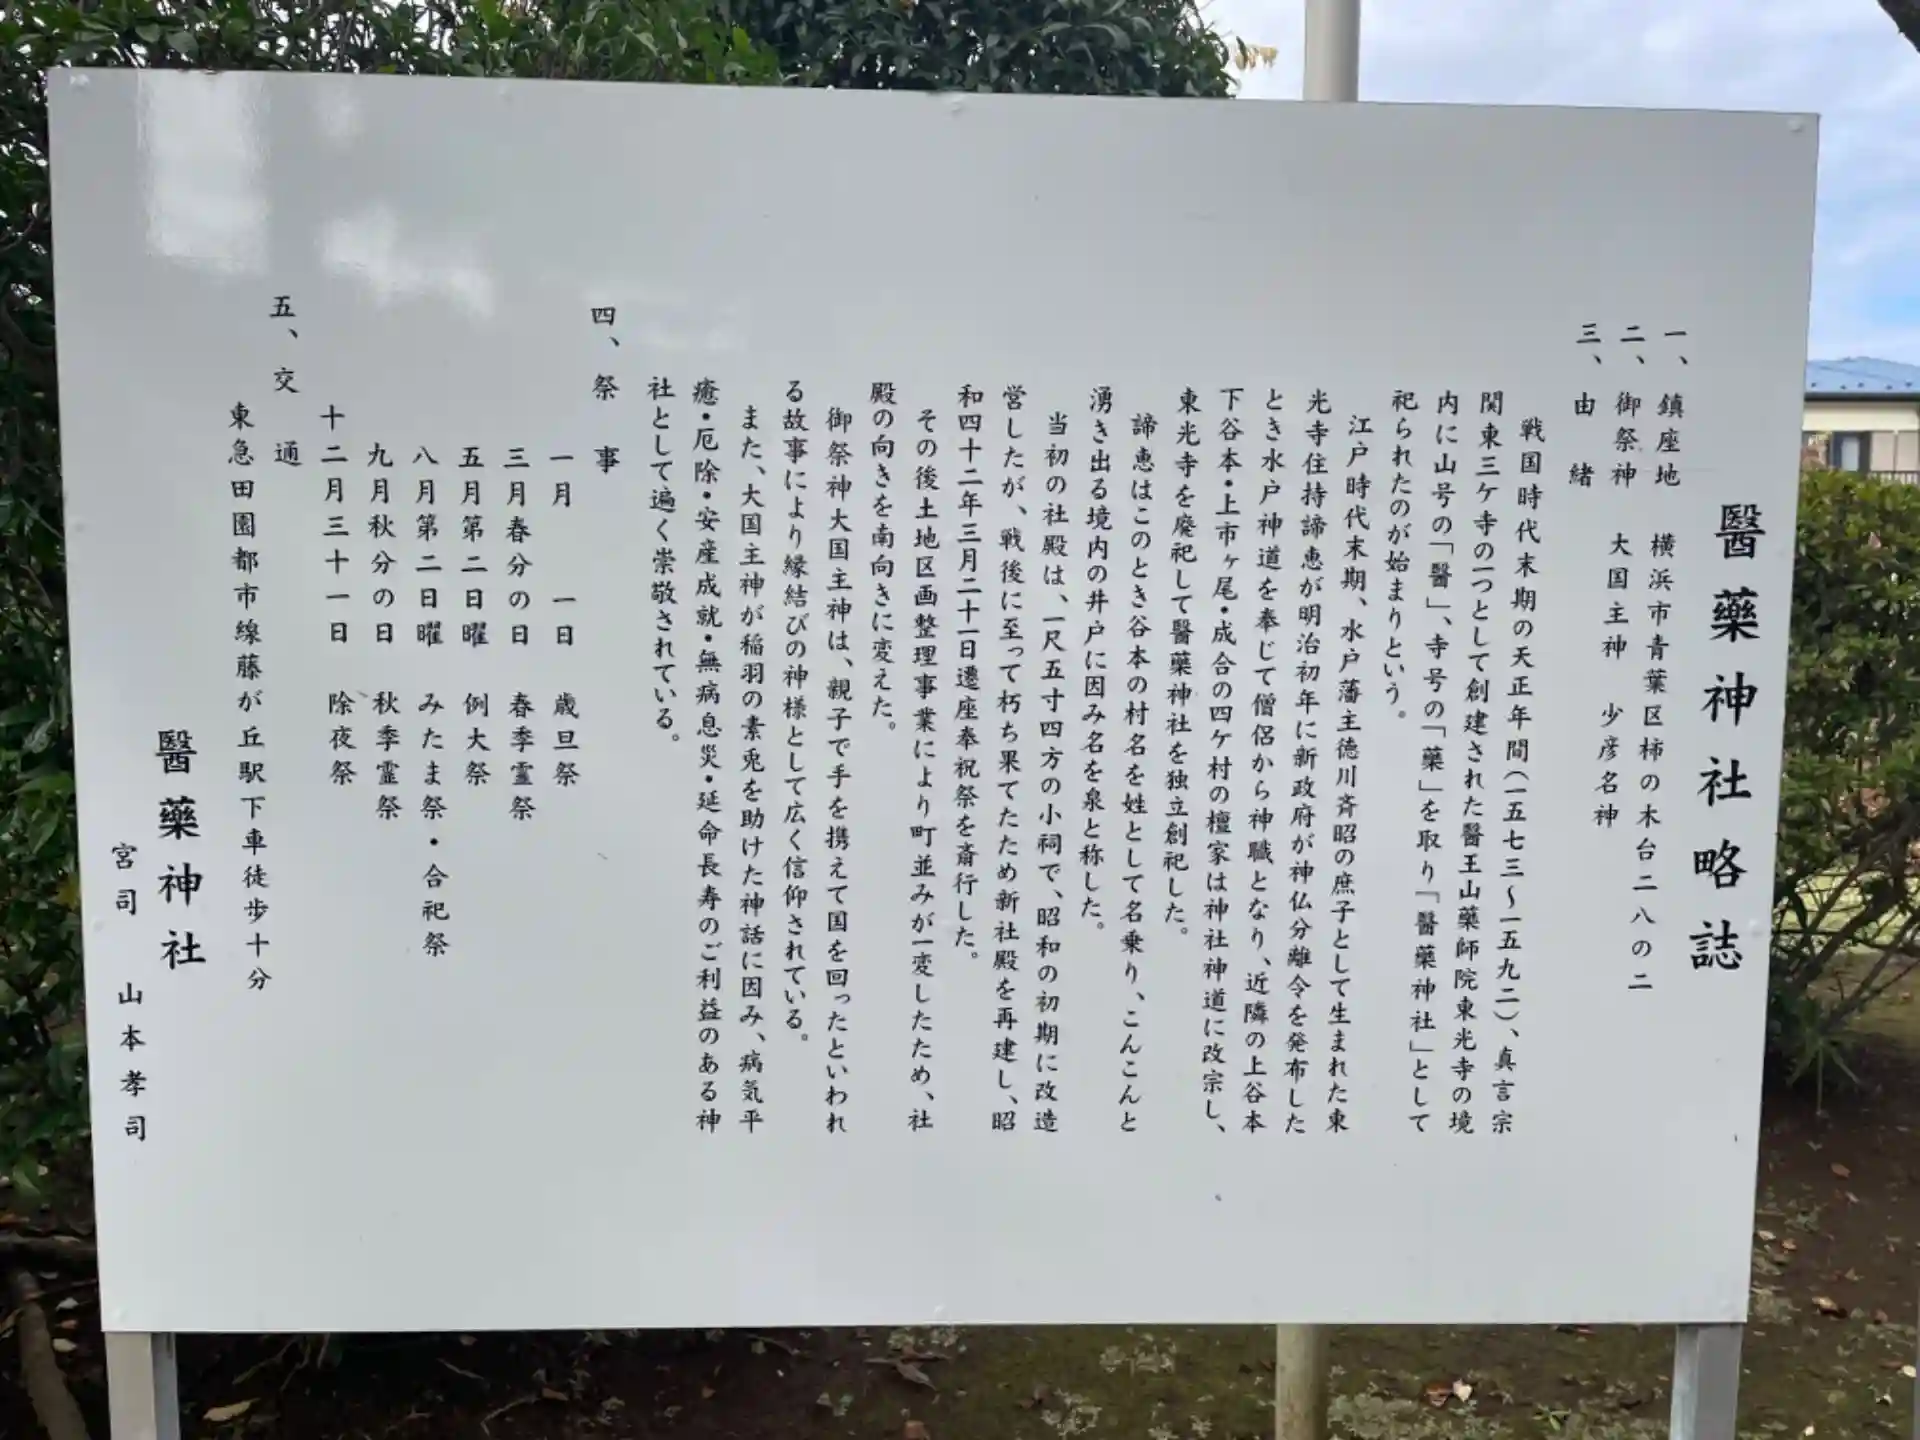 醫藥神社略誌
一、鎮座地　横浜市青葉区柿の木台二八の二
二、御祭神　大国主神　少彦名神
三、由緒
戦国時代末期の天正年間（一五七三〜一五九二）、真言宗
関東三ケ寺の一つとして創建された醫王山藥師院東光寺の境
内に山号の「醫」、寺号の「藥」を取り「醫藥神社」として
祀られたのが始まりという。
江戸時代末期、水戸藩主徳川斉昭の庶子として生まれた東
光寺住持諦恵が明治初年に新政府が神仏分離令を発布した
とき水戸神道を奉じて僧侶から神職となり、近隣の上谷本
下谷本・上市ヶ尾・成合の四ケ村の檀家は神社神道に改宗し、
東光寺を廃祀して醫藥神社を独立創祀した。
諦恵はこのとき谷本の村名を姓として名乗り、こんこんと
湧き出る境内の井戸に因み名を泉と称した。
当初の社殿は、一尺五寸四方の小祠で、昭和の初期に改造
営したが、戦後に至って朽ち果てたため新社殿を再建し、昭
和四十二年三月二十一日遷座奉祝祭を斎行した。
その後土地区画整理事業により町並みが一変したため、社
殿の向きを南向きに変えた。
御祭神大国主神は、親子で手を携えて国を回ったといわれ
る故事により縁結びの神様として広く信仰されている。
また、大国主神が稲羽の素兎を助けた神話に因み、病気平
癒・厄除・安産成就・無病息災・延命長寿のご利益のある神
社として遍く崇敬されている。
四、祭事
一月　一日　歳旦祭
三月春分の日　春季霊祭
五月第二日曜　例大祭
八月第二日曜　みたま祭・合祀祭
九月秋分の日　秋季霊祭
十二月三十一日　除夜祭
五、交通
東急田園都市線藤が丘駅下車徒歩十分
醫藥神社
宮司　山本孝司